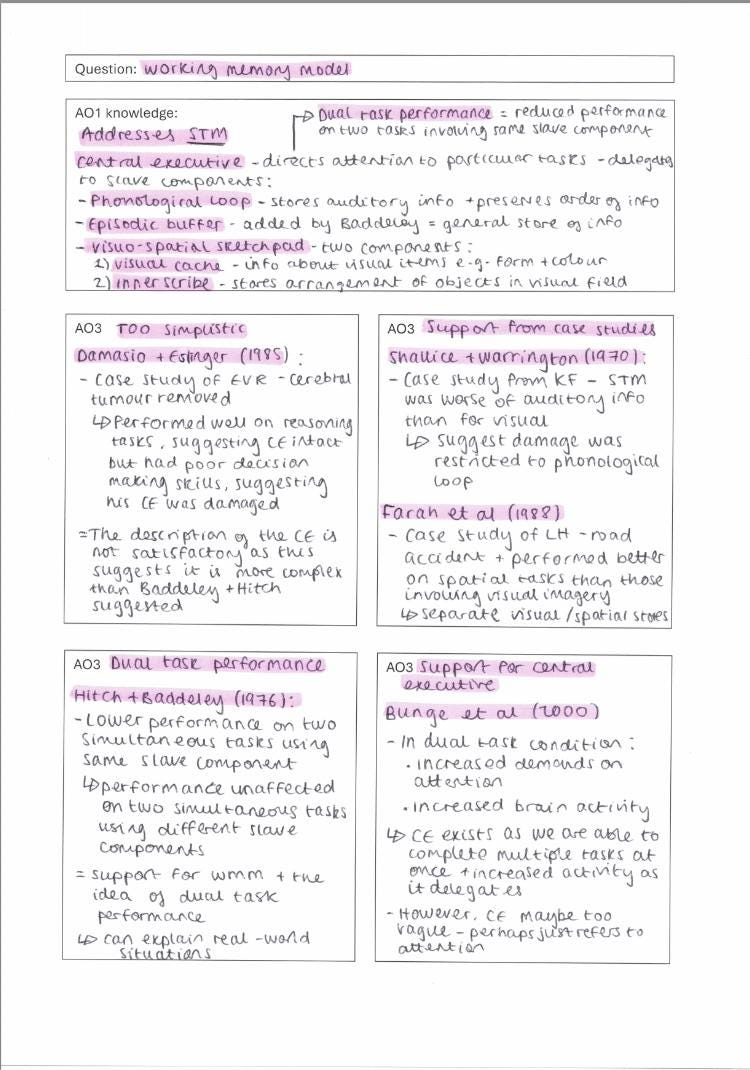 Question: working memory model
AO1 knowledge:
Addresses STM
↳ Dual task performance = reduced performance
on two tasks involving same slave component
central executive - directs attention to particular tasks - delegates
to slave components:
- Phonological loop - stores auditory info + preserves order of info
- Episodic buffer - added by Baddeley = general store of info
- visuo-spatial sketchpad - two components:
1) visual cache - info about visual items e.g. form + colour
2) inner scribe - stores arrangement of objects in visual field
AO3 Too simplistic
Damasio + Eslinger (1985):
- Case study of EVR - cerebral
tumour removed
↳ Performed well on reasoning
tasks, suggesting CE intact
but had poor decision
making skills, suggesting
his CE was damaged
= The description of the CE is
not satisfactory as this
suggests it is more complex
than Baddeley + Hitch
suggested
AO3 Support from case studies
Shallice + Warrington (1970):
- Case study from KF - STM
was worse of auditory info
than for visual
↳ suggest damage was
restricted to phonological
loop
Farah et al (1988)
- Case study of LH - road
accident + performed better
on spatial tasks than those
involving visual imagery
↳ separate visual/spatial stores
AO3 Dual task performance
Hitch + Baddeley (1976):
- Lower performance on two
simultaneous tasks using
same slave component
↳ performance unaffected
on two simultaneous tasks
using different slave
components
= support for wmm + the
idea of dual task
performance
↳ can explain real-world
situations
AO3 Support for central
executive
Bunge et al (2000)
- In dual task condition:
• increased demands on
attention
• increased brain activity
↳ CE exists as we are able to
complete multiple tasks at
once + increased activity as
it delegates
- However, CE maybe too
vague - perhaps just refers to
attention